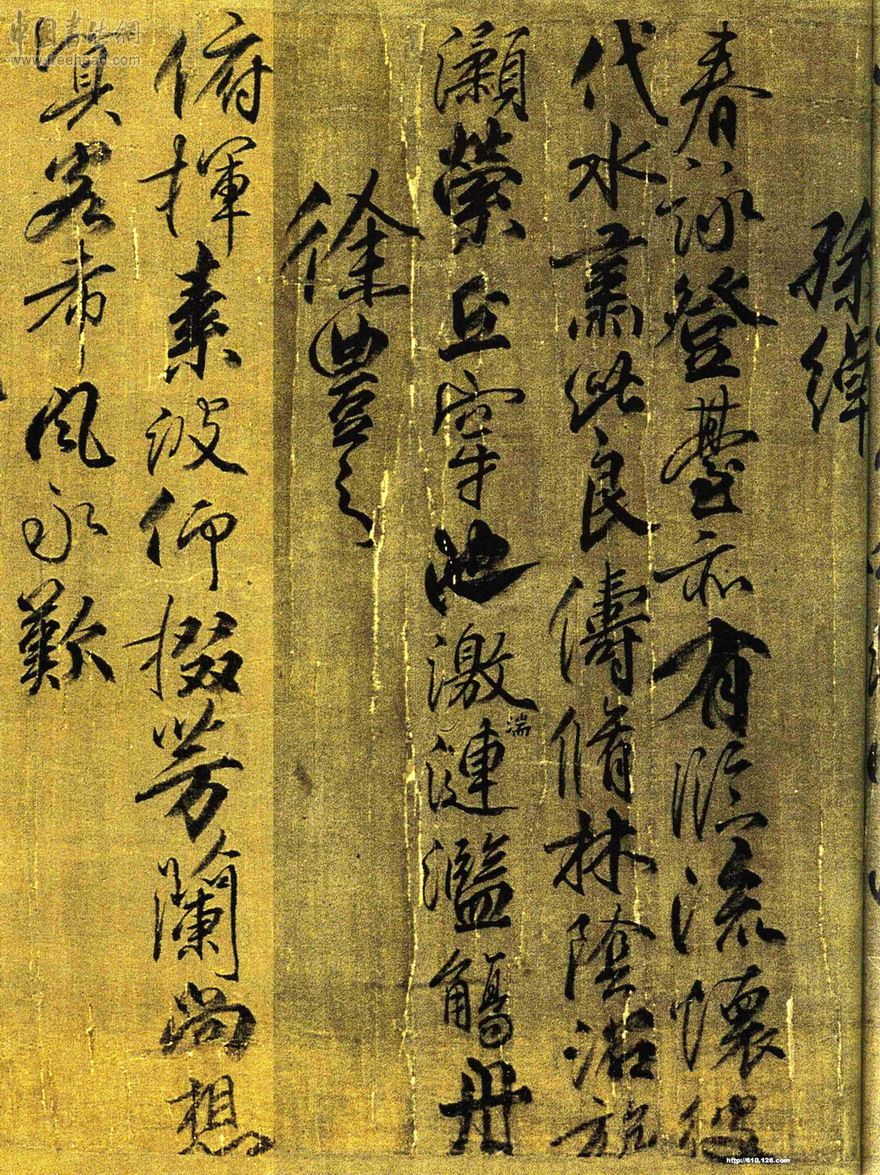 孫綽
春詠登臺亦有臨流懷彼
代水肅此良儔脩林陰沼旋
瀨縈丘穿池激湍漣濫觴舟
徐豐之
俯揮素波仰掇芳蘭尚想
客希風永歎
中国书法網
www.freehead.com
http://610.126.com